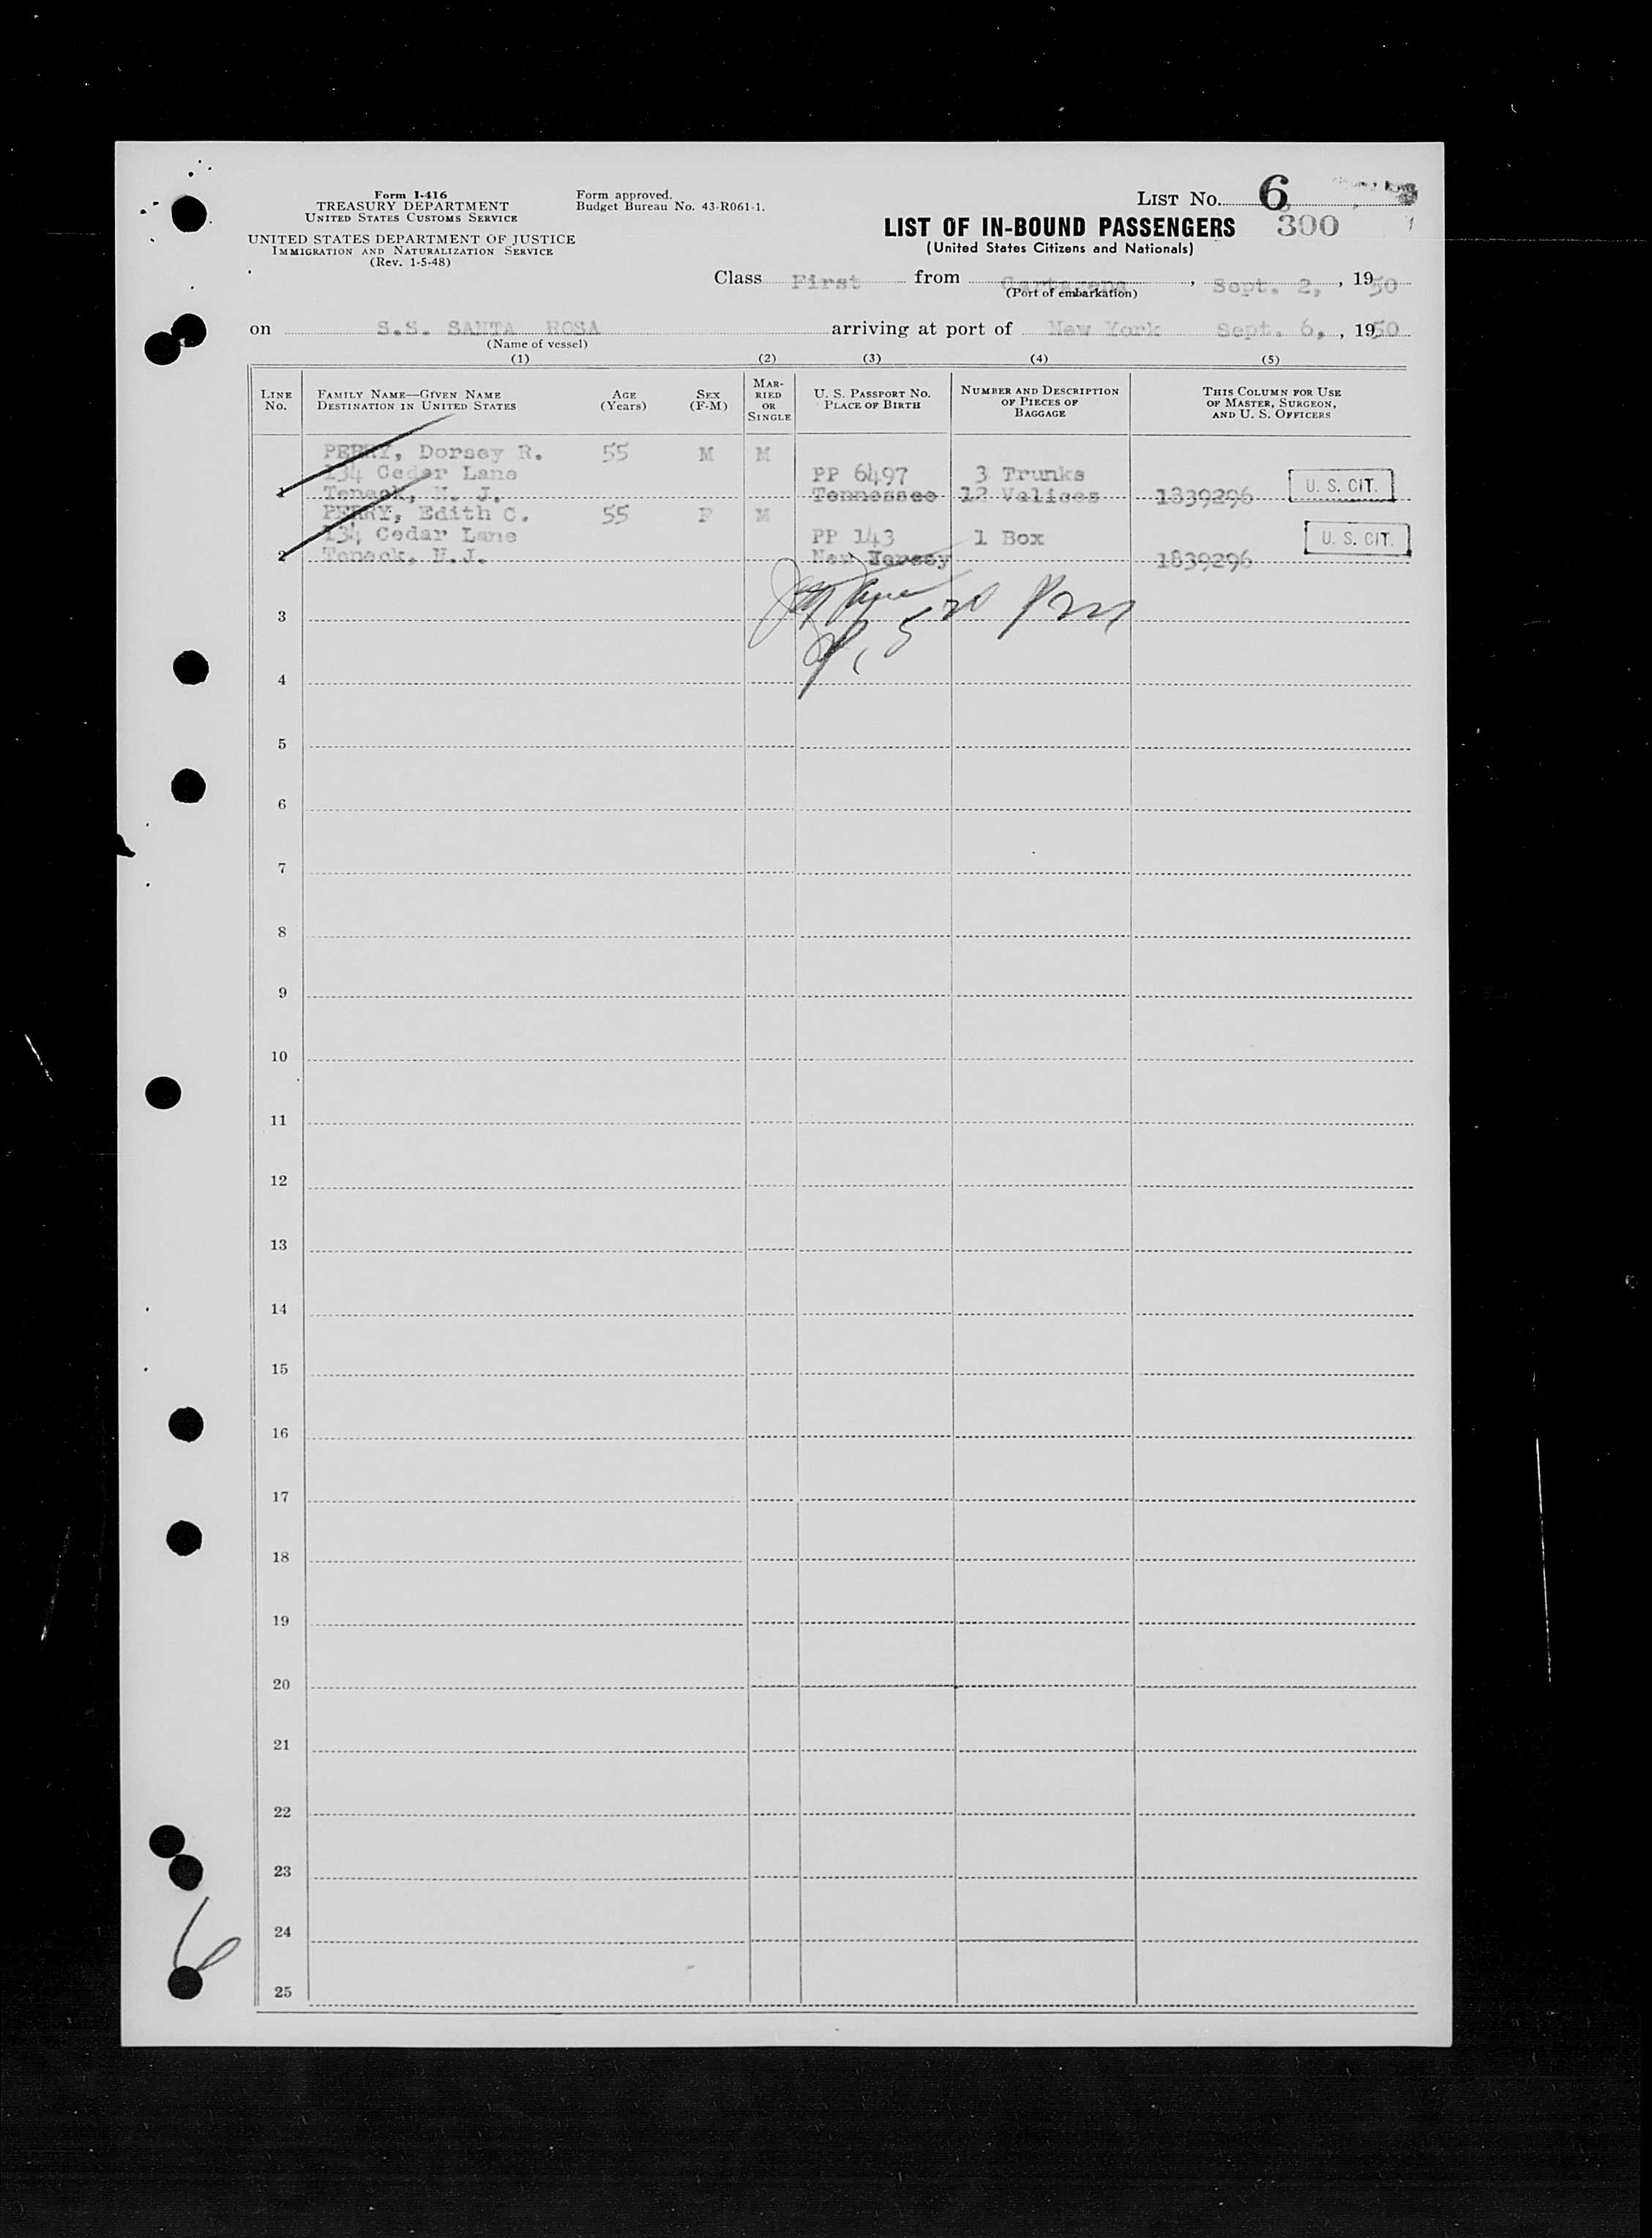 Form I-416
TREASURY DEPARTMENT
UNITED STATES CUSTOMS SERVICE
UNITED STATES DEPARTMENT OF JUSTICE
IMMIGRATION AND NATURALIZATION SERVICE
(Rev. 1-5-48)
Form approved.
Budget Bureau No. 43-R061-1.
LIST No. 6
LIST OF IN-BOUND PASSENGERS 300
(United States Citizens and Nationals)
Class First from Cartagena, Sept. 2, 1950
(Port of embarkation)
on S.S. SANTA ROSA arriving at port of New York Sept. 6, 1950
(Name of vessel)
(1) (2) (3) (4) (5)
LINE No.
FAMILY NAME—GIVEN NAME
DESTINATION IN UNITED STATES
AGE (Years)
SEX (F-M)
MARRIED OR SINGLE
U. S. PASSPORT NO.
PLACE OF BIRTH
NUMBER AND DESCRIPTION
OF PIECES OF
BAGGAGE
THIS COLUMN FOR USE
OF MASTER, SURGEON,
AND U. S. OFFICERS
PERRY, Dorsey R. 55 M M
134 Cedar Lane PP 6497 3 Trunks
1 Teneck, N. J. Tennessee 12 Valises 1839296 U. S. CIT.
PERRY, Edith C. 55 F M
134 Cedar Lane PP 143 1 Box U. S. CIT.
2 Teneck, N.J. New Jersey 1839296
3
4
5
6
7
8
9
10
11
12
13
14
15
16
17
18
19
20
21
22
23
24
25
6